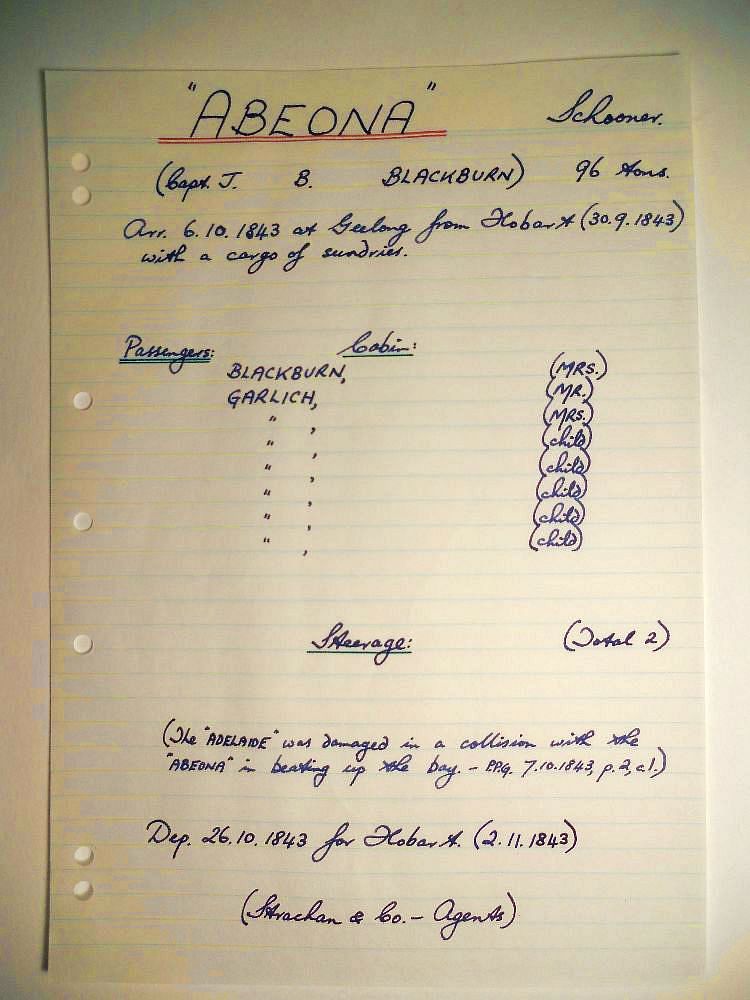 "ABEONA" Schooner.
(Capt. J. B. BLACKBURN) 96 tons.
Arr. 6.10.1843 at Geelong from Hobart (30.9.1843)
with a cargo of sundries.
Passengers: Cabin:
BLACKBURN, (MRS.)
GARLICH, (MR.)
" , (MRS.)
" , (child)
" , (child)
" , (child)
" , (child)
" , (child)
Steerage: (Total 2)
(The "ADELAIDE" was damaged in a collision with the
"ABEONA" in beating up the bay. - P.P.G. 7.10.1843, p.2, c.1.)
Dep. 26.10.1843 for Hobart. (2.11.1843)
(Strachan & Co. - Agents)